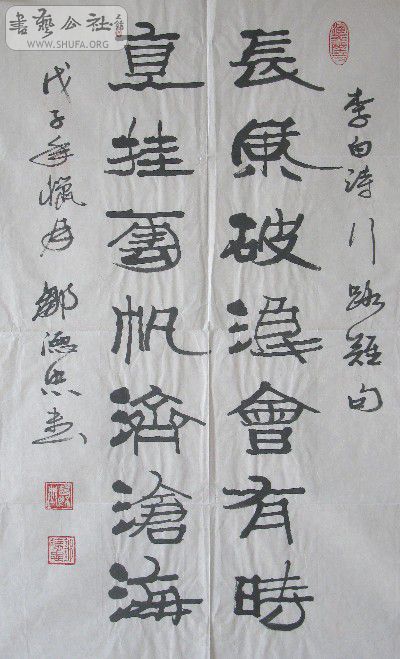 書藝公社
WWW.SHUFA.ORG
李白詩行路難句
長破浪會有時
直挂雲帆濟滄海
戊子年臘月鄒德忠書